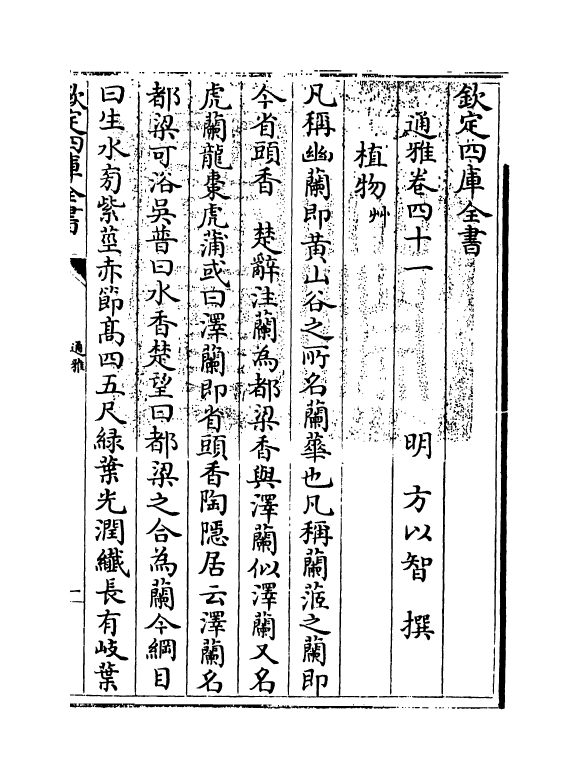 欽定四庫全書
通雅卷四十一
明 方以智 撰
植物 艸
凡稱幽蘭即黃山谷之所名蘭蕐也凡稱蘭蒞之蘭即
今省頭香 楚辭注蘭為都梁香與澤蘭似澤蘭又名
虎蘭龍棗虎蒲或曰澤蘭即省頭香陶隱居云澤蘭名
都梁可浴吳普曰水香楚望曰都梁之合為蘭今綱目
曰生水旁紫莖赤節髙四五尺緑葉光潤纖長有岐葉
欽定四庫全書
通雅